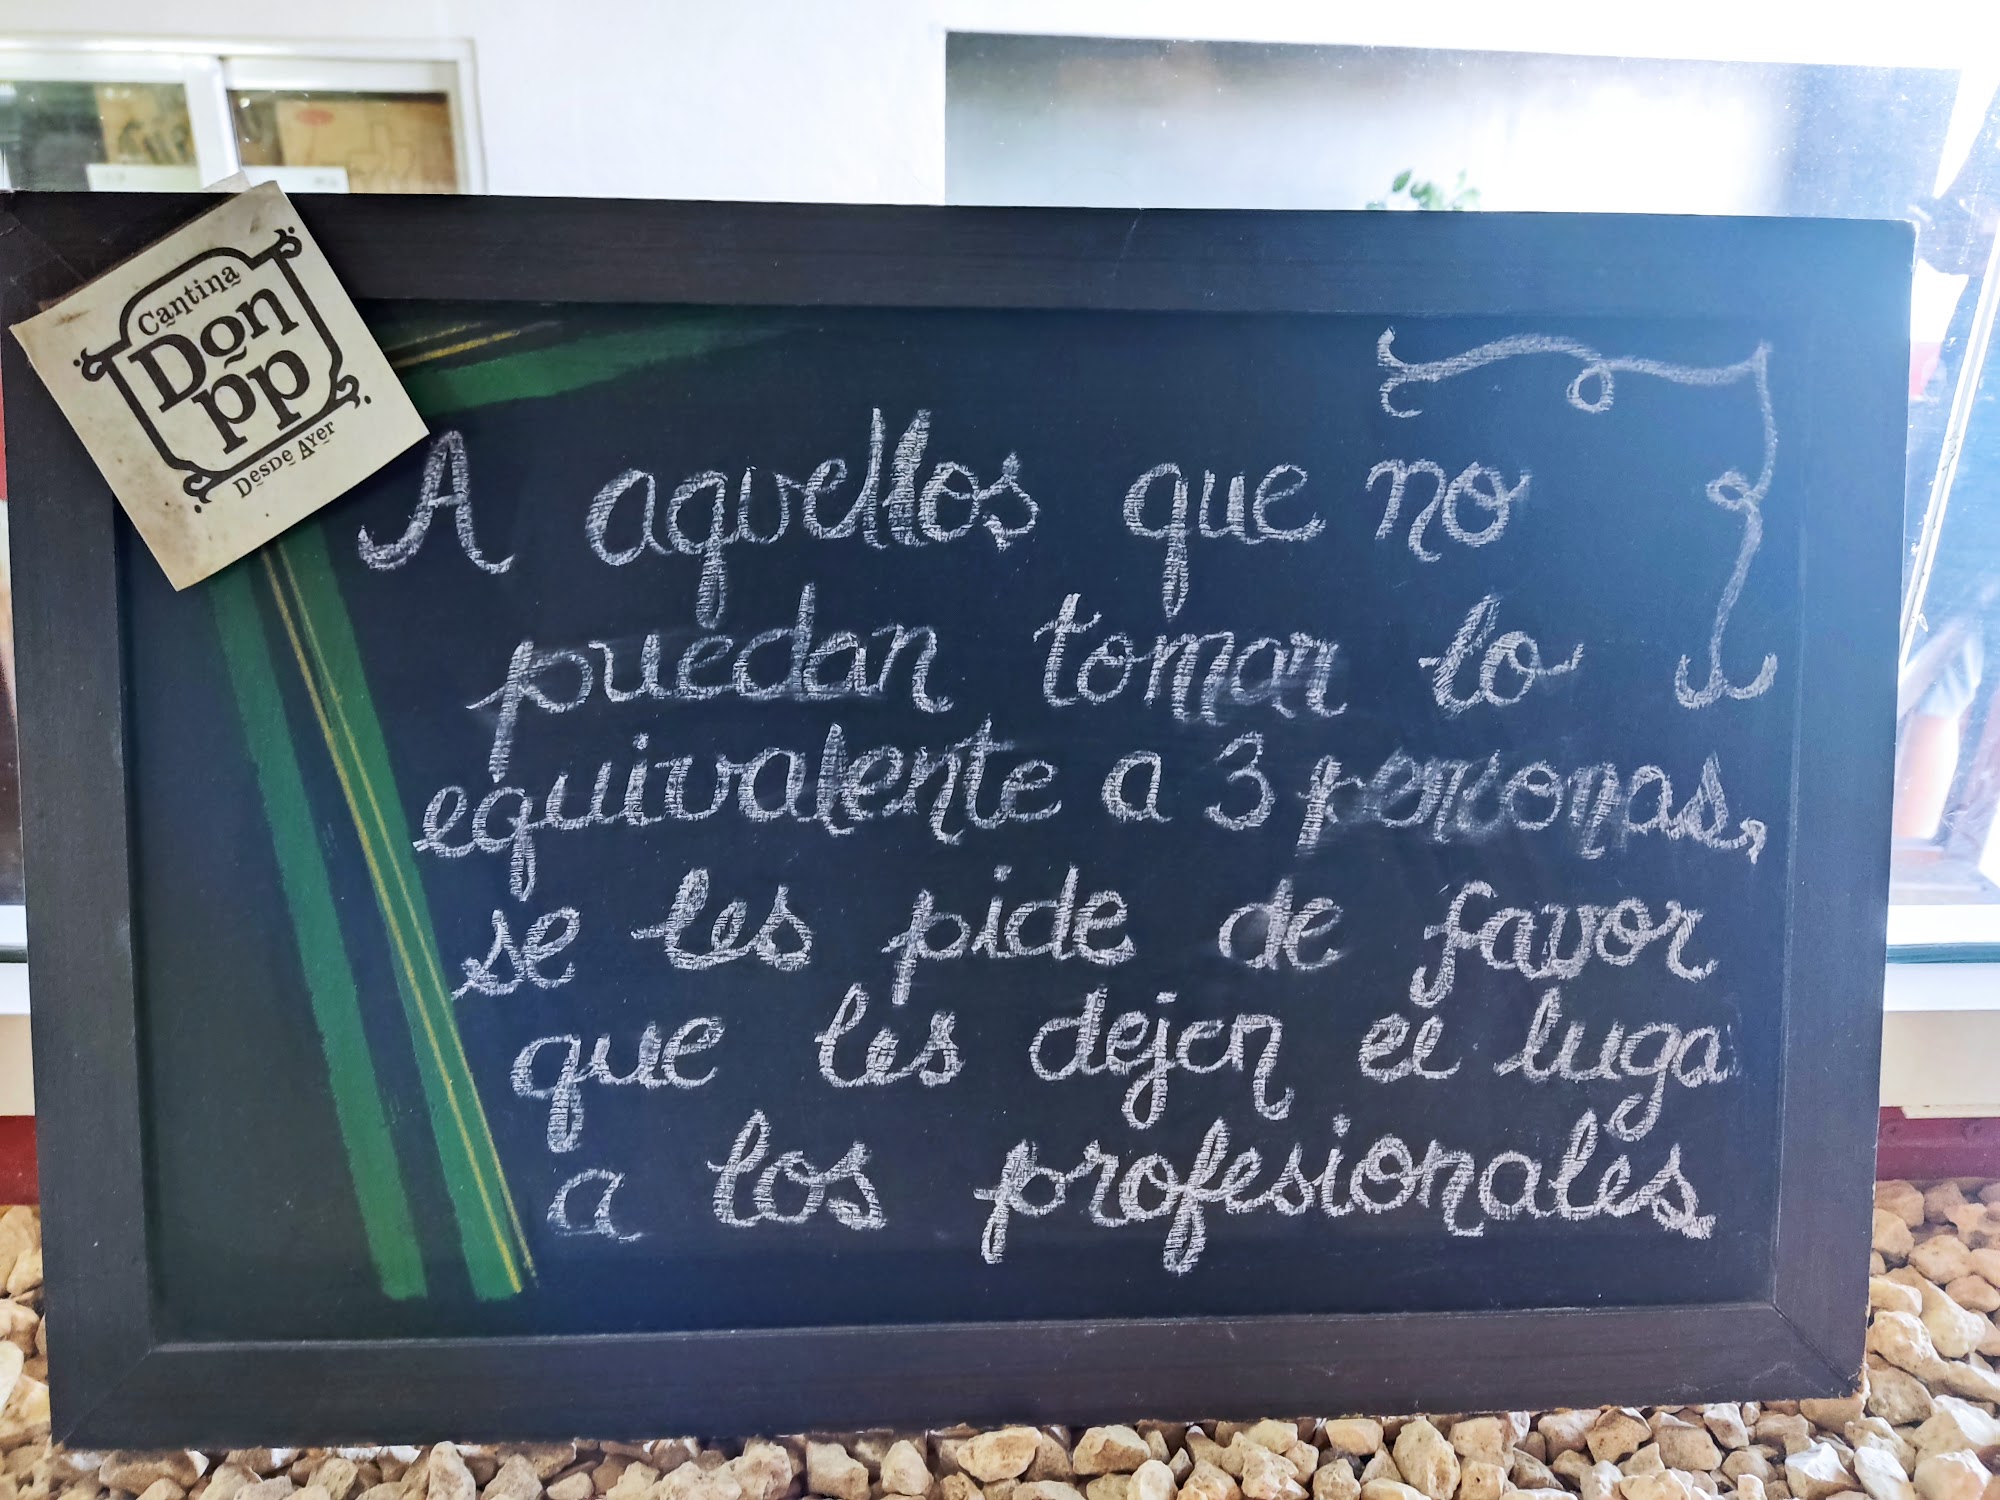 Cantina
Don
pp
Desde Ayer
A aquellos que no
puedan tomar lo
equivalente a 3 personas,
se les pide de favor
que les dejen el luga
a los profesionales